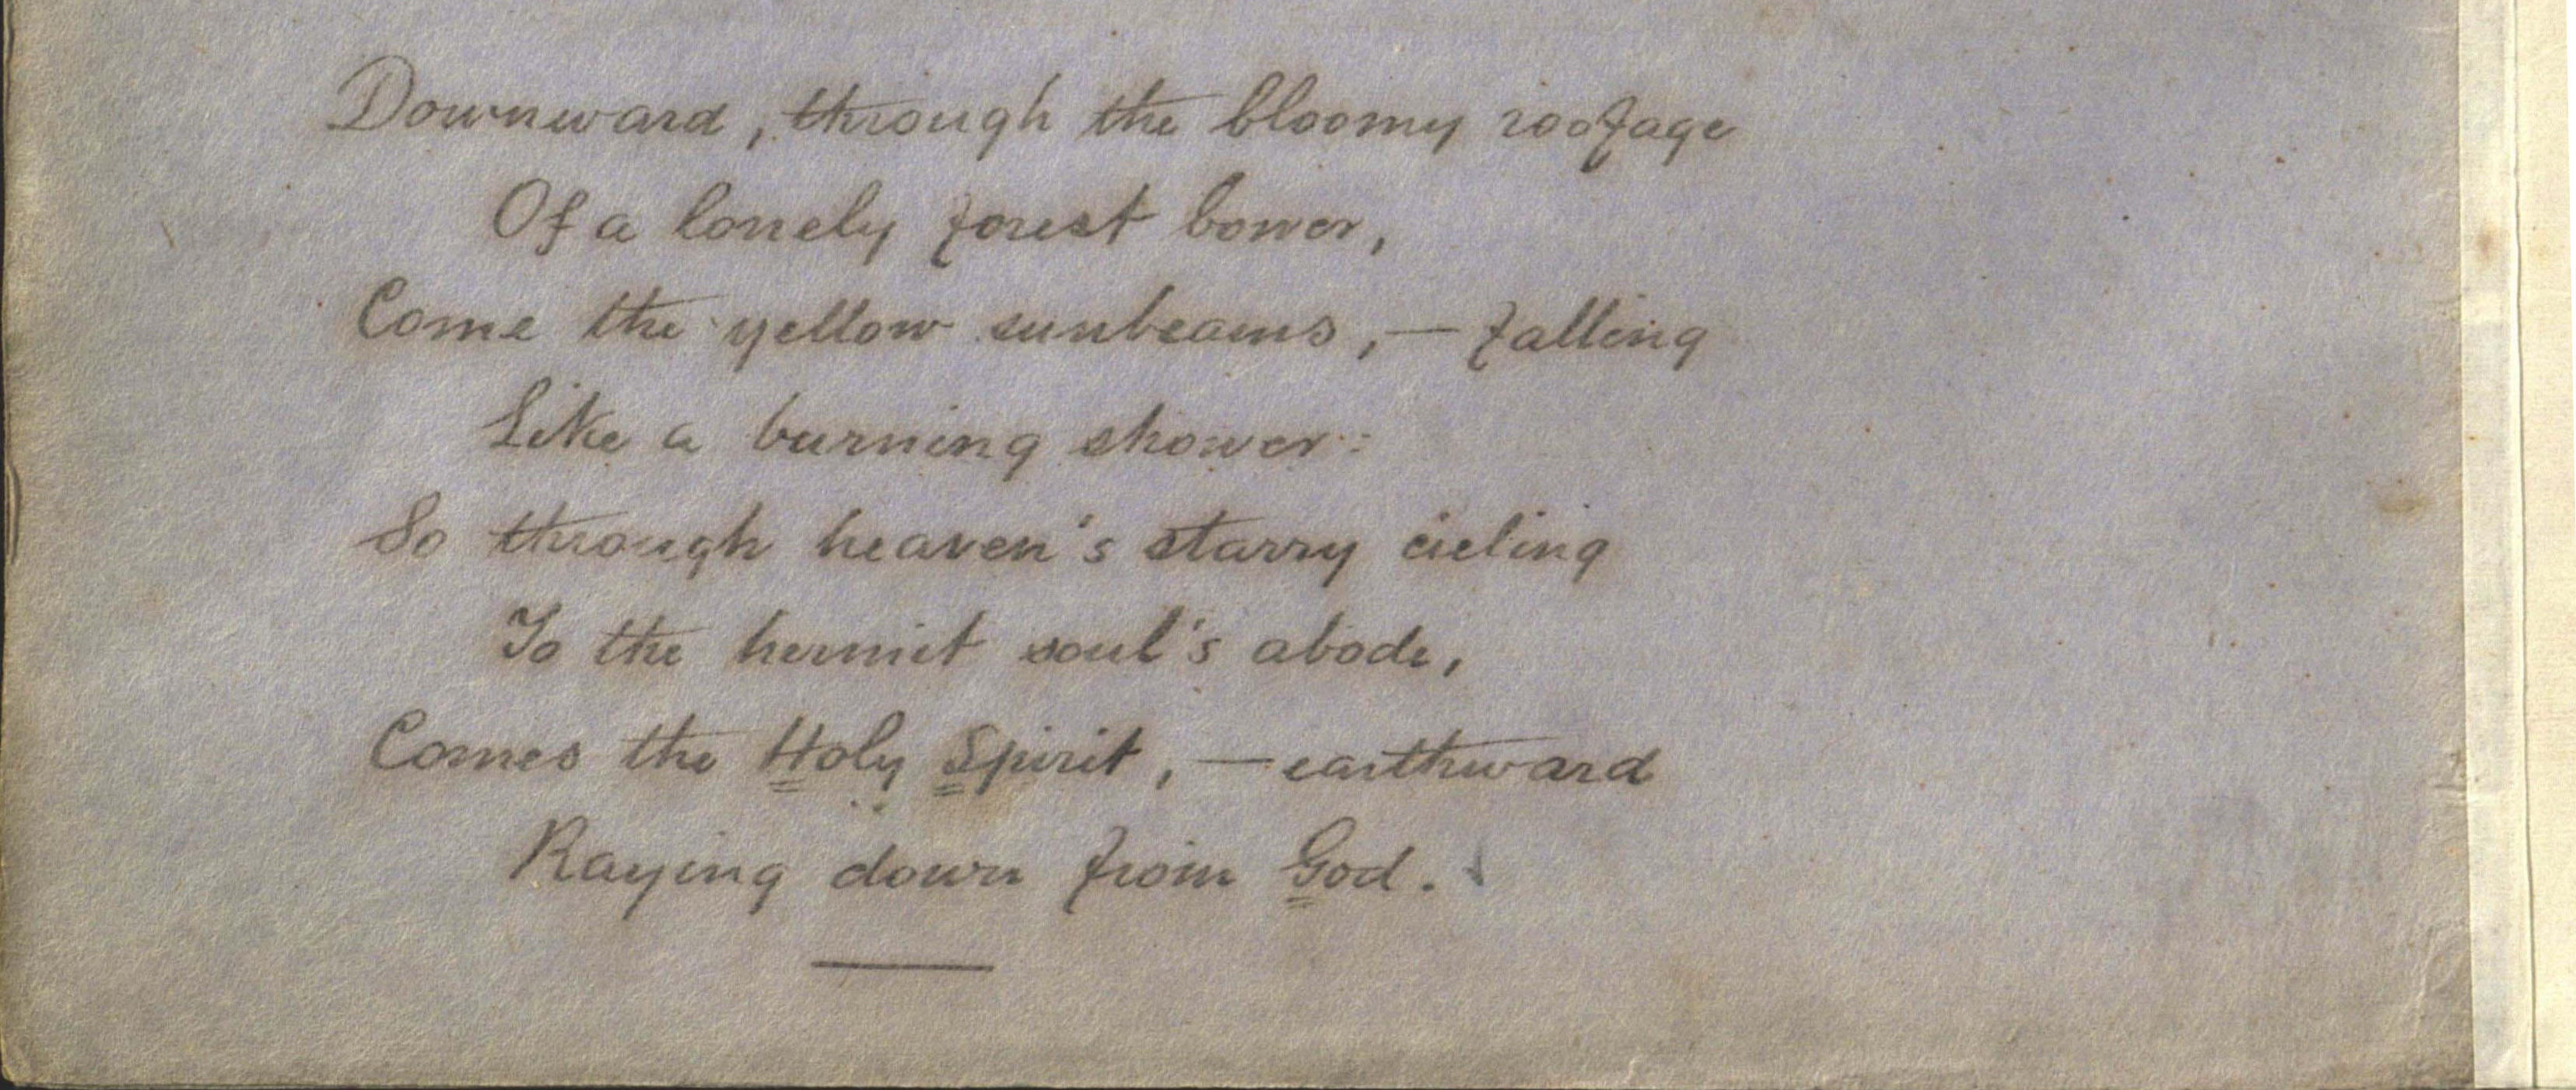 Downward, through the bloomy roofage
Of a lonely forest bower,
Come the yellow sunbeams,— falling
Like a burning shower:
So through heaven's starry cieling
To the hermit soul's abode,
Comes the Holy Spirit,— earthward
Raying down from God.